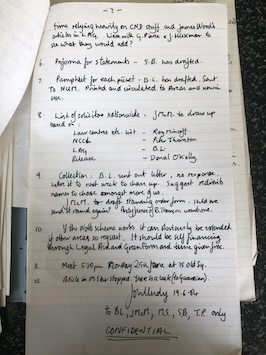 - 2 -
time relying heavily on CND stuff and James Wood's
article in LAG. Liaise with G. Pierce & J. Hickman to
see what they would add?
6. Proforma for statements - S.B. has drafted.
7. Pamphlet for each picket - B.L. has drafted. Sent
to NUM. Printed and circulated to Areas and
use.
8. List of solicitors nationwide. J.M.M. to draw up
based on:
Law centres etc. list -
NCCL - Pete Thornton
LAG - B.L.
Release - Donal O'Kelly
9. Collection. B.L. sent out letter, no response.
to next week to them up. Suggest
to chose amongst more give.
J.M.M. to draft standing order form. Could we
send it round again?
10. If the pilot scheme works it can obviously be extended
if other areas so request. It should be self financing
through Legal Aid and Green Form and time given free.
11. Meet 5.30pm Monday 25th June at 15 Old Sq.
12. Article in M. Star stopped. There is a
19.6.84
To BL, JMM, MS, SB, T.P. only
CONFIDENTIAL